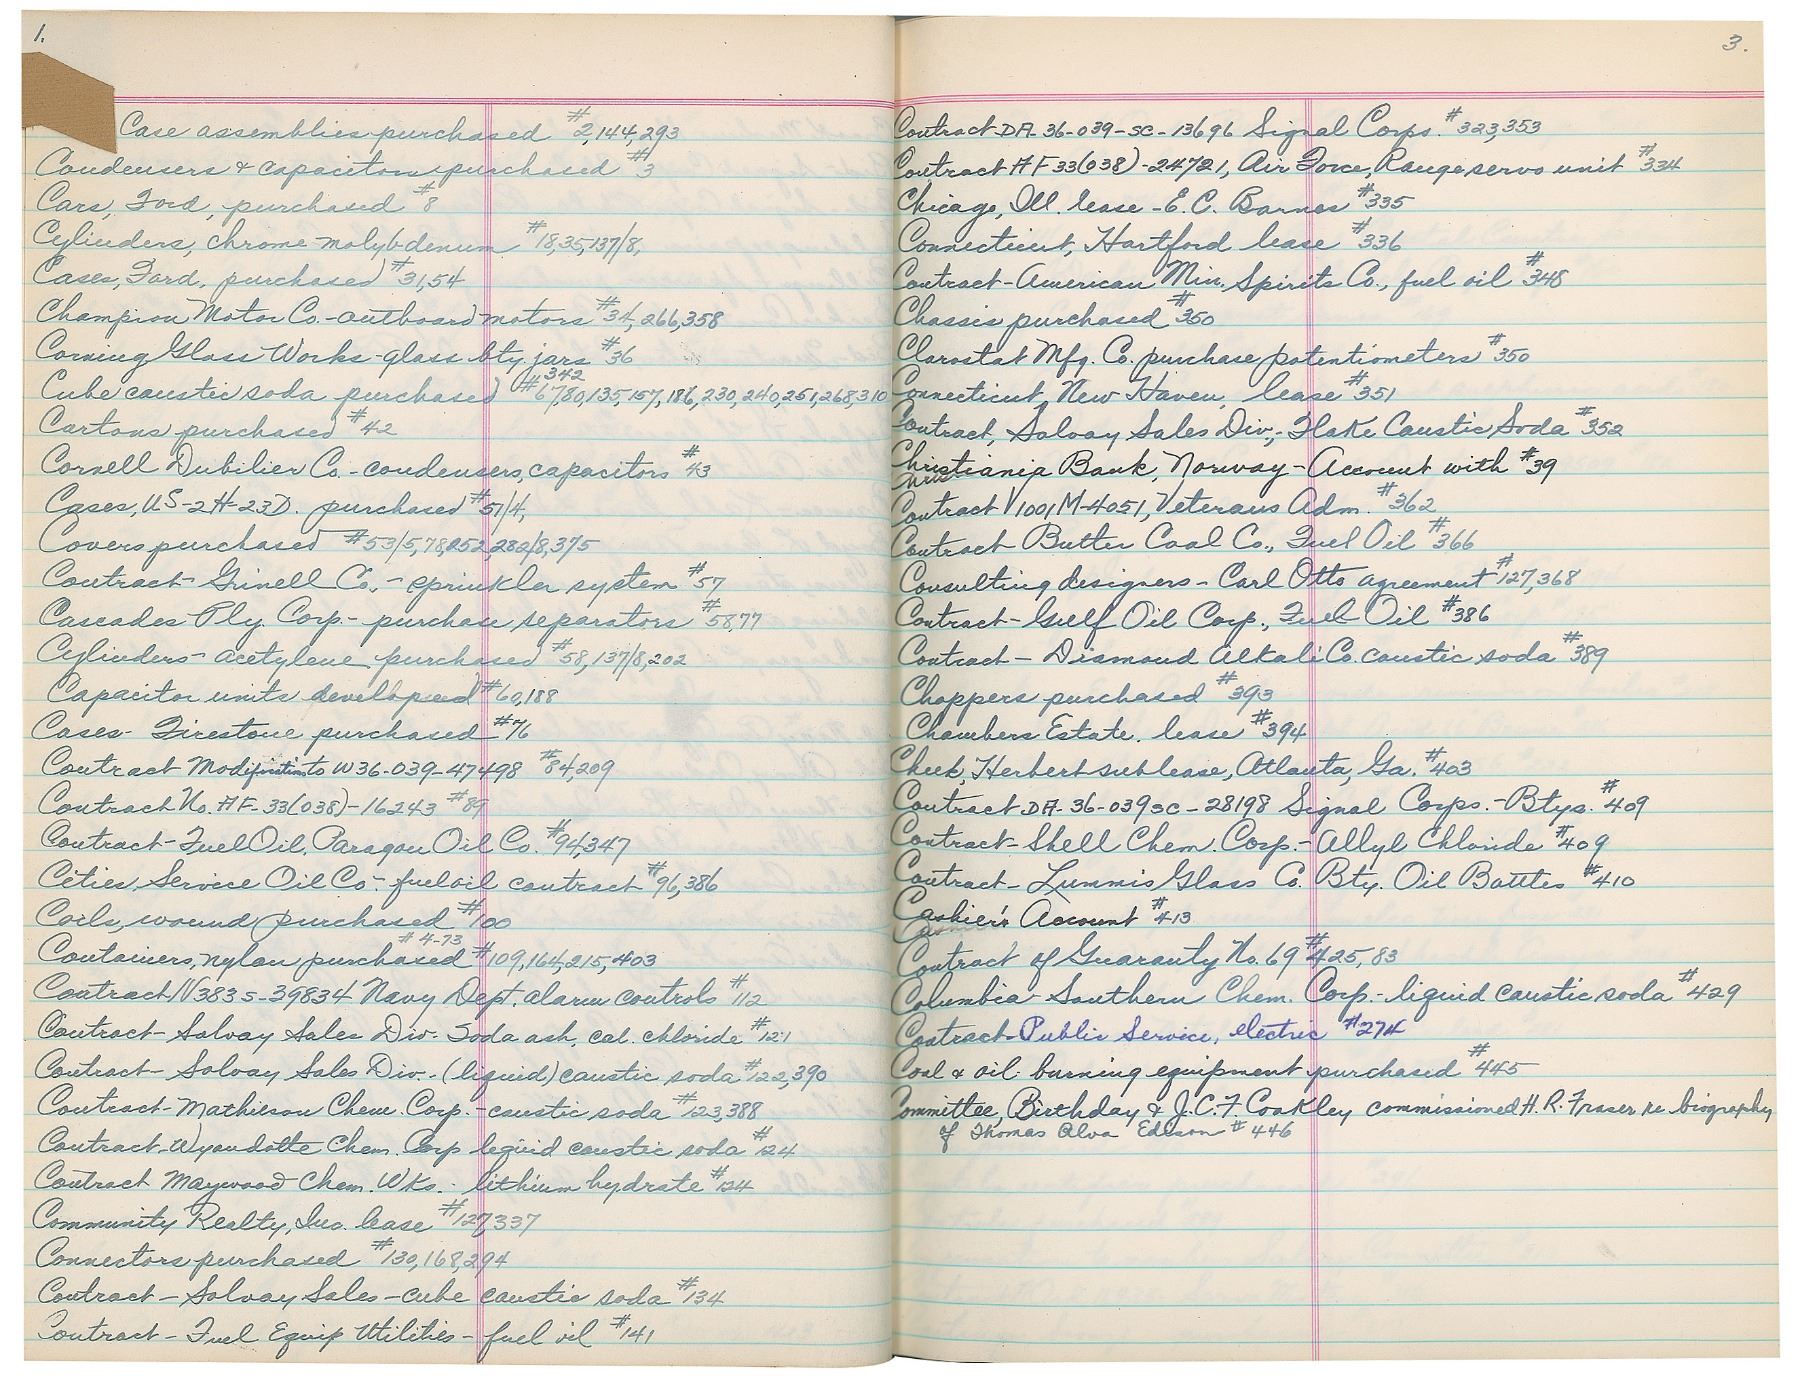 1.
Case assemblies purchased #2,144,293
Condensers & capacitors purchased #3
Cars, Ford, purchased #8
Cylinders, chrome-molybdenum #18,35,137/8,
Cases, Ford, purchased #31,54
Champion Motor Co.-outboard motors #34,266,358
Corning Glass Works-glass bty. jars #36
342
Cube caustic soda purchased #67,80,135,157,186,230,240,251,268,310
Cartons purchased #42
Cornell Dubilier Co.-condensers, capacitors #43
Cases, US-2H-23D. purchased #51/4,
Covers purchased #53/5,78,252,282/8,375
Contract-Grinell Co.-sprinkler system #57
Cascades Ply. Corp.-purchase separators #58,77
Cylinders-acetylene, purchased #58,137/8,202
Capacitor units developed #60,188
Cases-Firestone purchased #76
Contract Modifications to W36-039-47498 #84,209
Contract No. AF-33(038)-16243 #89
Contract-Fuel Oil, Paragon Oil Co. #94,347
Cities Service Oil Co.-fuel oil contract #96,386
Coils, wound purchased #100
#4-73
Containers, nylon purchased #109,164,215,403
Contract N383s-39834 Navy Dept. alarm controls #112
Contract-Solvay Sales Div-Soda ash, cal. chloride #121
Contract-Solvay Sales Div.-(liquid) caustic soda #122,390
Contract-Mathieson Chem. Corp.-caustic soda #123,388
Contract-Wyandotte Chem. Corp liquid caustic soda #124
Contract Maywood Chem. Wks.-lithium hydrate #124
Community Realty, Inc. lease #127,337
Connectors purchased #130,168,294
Contract-Solvay Sales-cube caustic soda #134
Contract-Fuel Equip Utilities-fuel oil #141
3.
Contract DA-36-039-sc-13696 Signal Corps. #323,353
Contract AF33(038)-24721, Air Force, Range servo unit #334
Chicago, Ill. lease-E.C. Barnes #335
Connecticut, Hartford lease #336
Contract-American Min. Spirits Co., fuel oil #348
Chassis purchased #350
Clarostat Mfg. Co. purchase potentiometers #350
Connecticut, New Haven, lease #351
Contract, Solvay Sales Div.,-Flake Caustic Soda #352
Christiania Bank, Norway-Account with #39
Contract V1001M-4051, Veterans Adm. #362
Contract Butter Coal Co., Fuel Oil #366
Consulting designers-Carl Otto agreement #127,368
Contract-Gulf Oil Corp., Fuel Oil #386
Contract-Diamond Alkali Co. caustic soda #389
Choppers purchased #393
Chambers Estate, lease #394
Cheek, Herbert sublease, Atlanta, Ga. #403
Contract DA-36-039sc-28198 Signal Corps.-Btys. #409
Contract-Shell Chem. Corp.-Allyl Chloride #409
Contract-Lummis Glass Co. Bty. Oil Bottles #410
Cashier's Account #413
Contract of Guaranty No. 69 #425,83
Columbia-Southern Chem. Corp.-liquid caustic soda #429
Contract-Public Service, electric #274
Coal & oil burning equipment purchased #445
Committee, Birthday & J.C.F. Coakley commissioned H.R. Fraser re biography
of Thomas Alva Edison #446